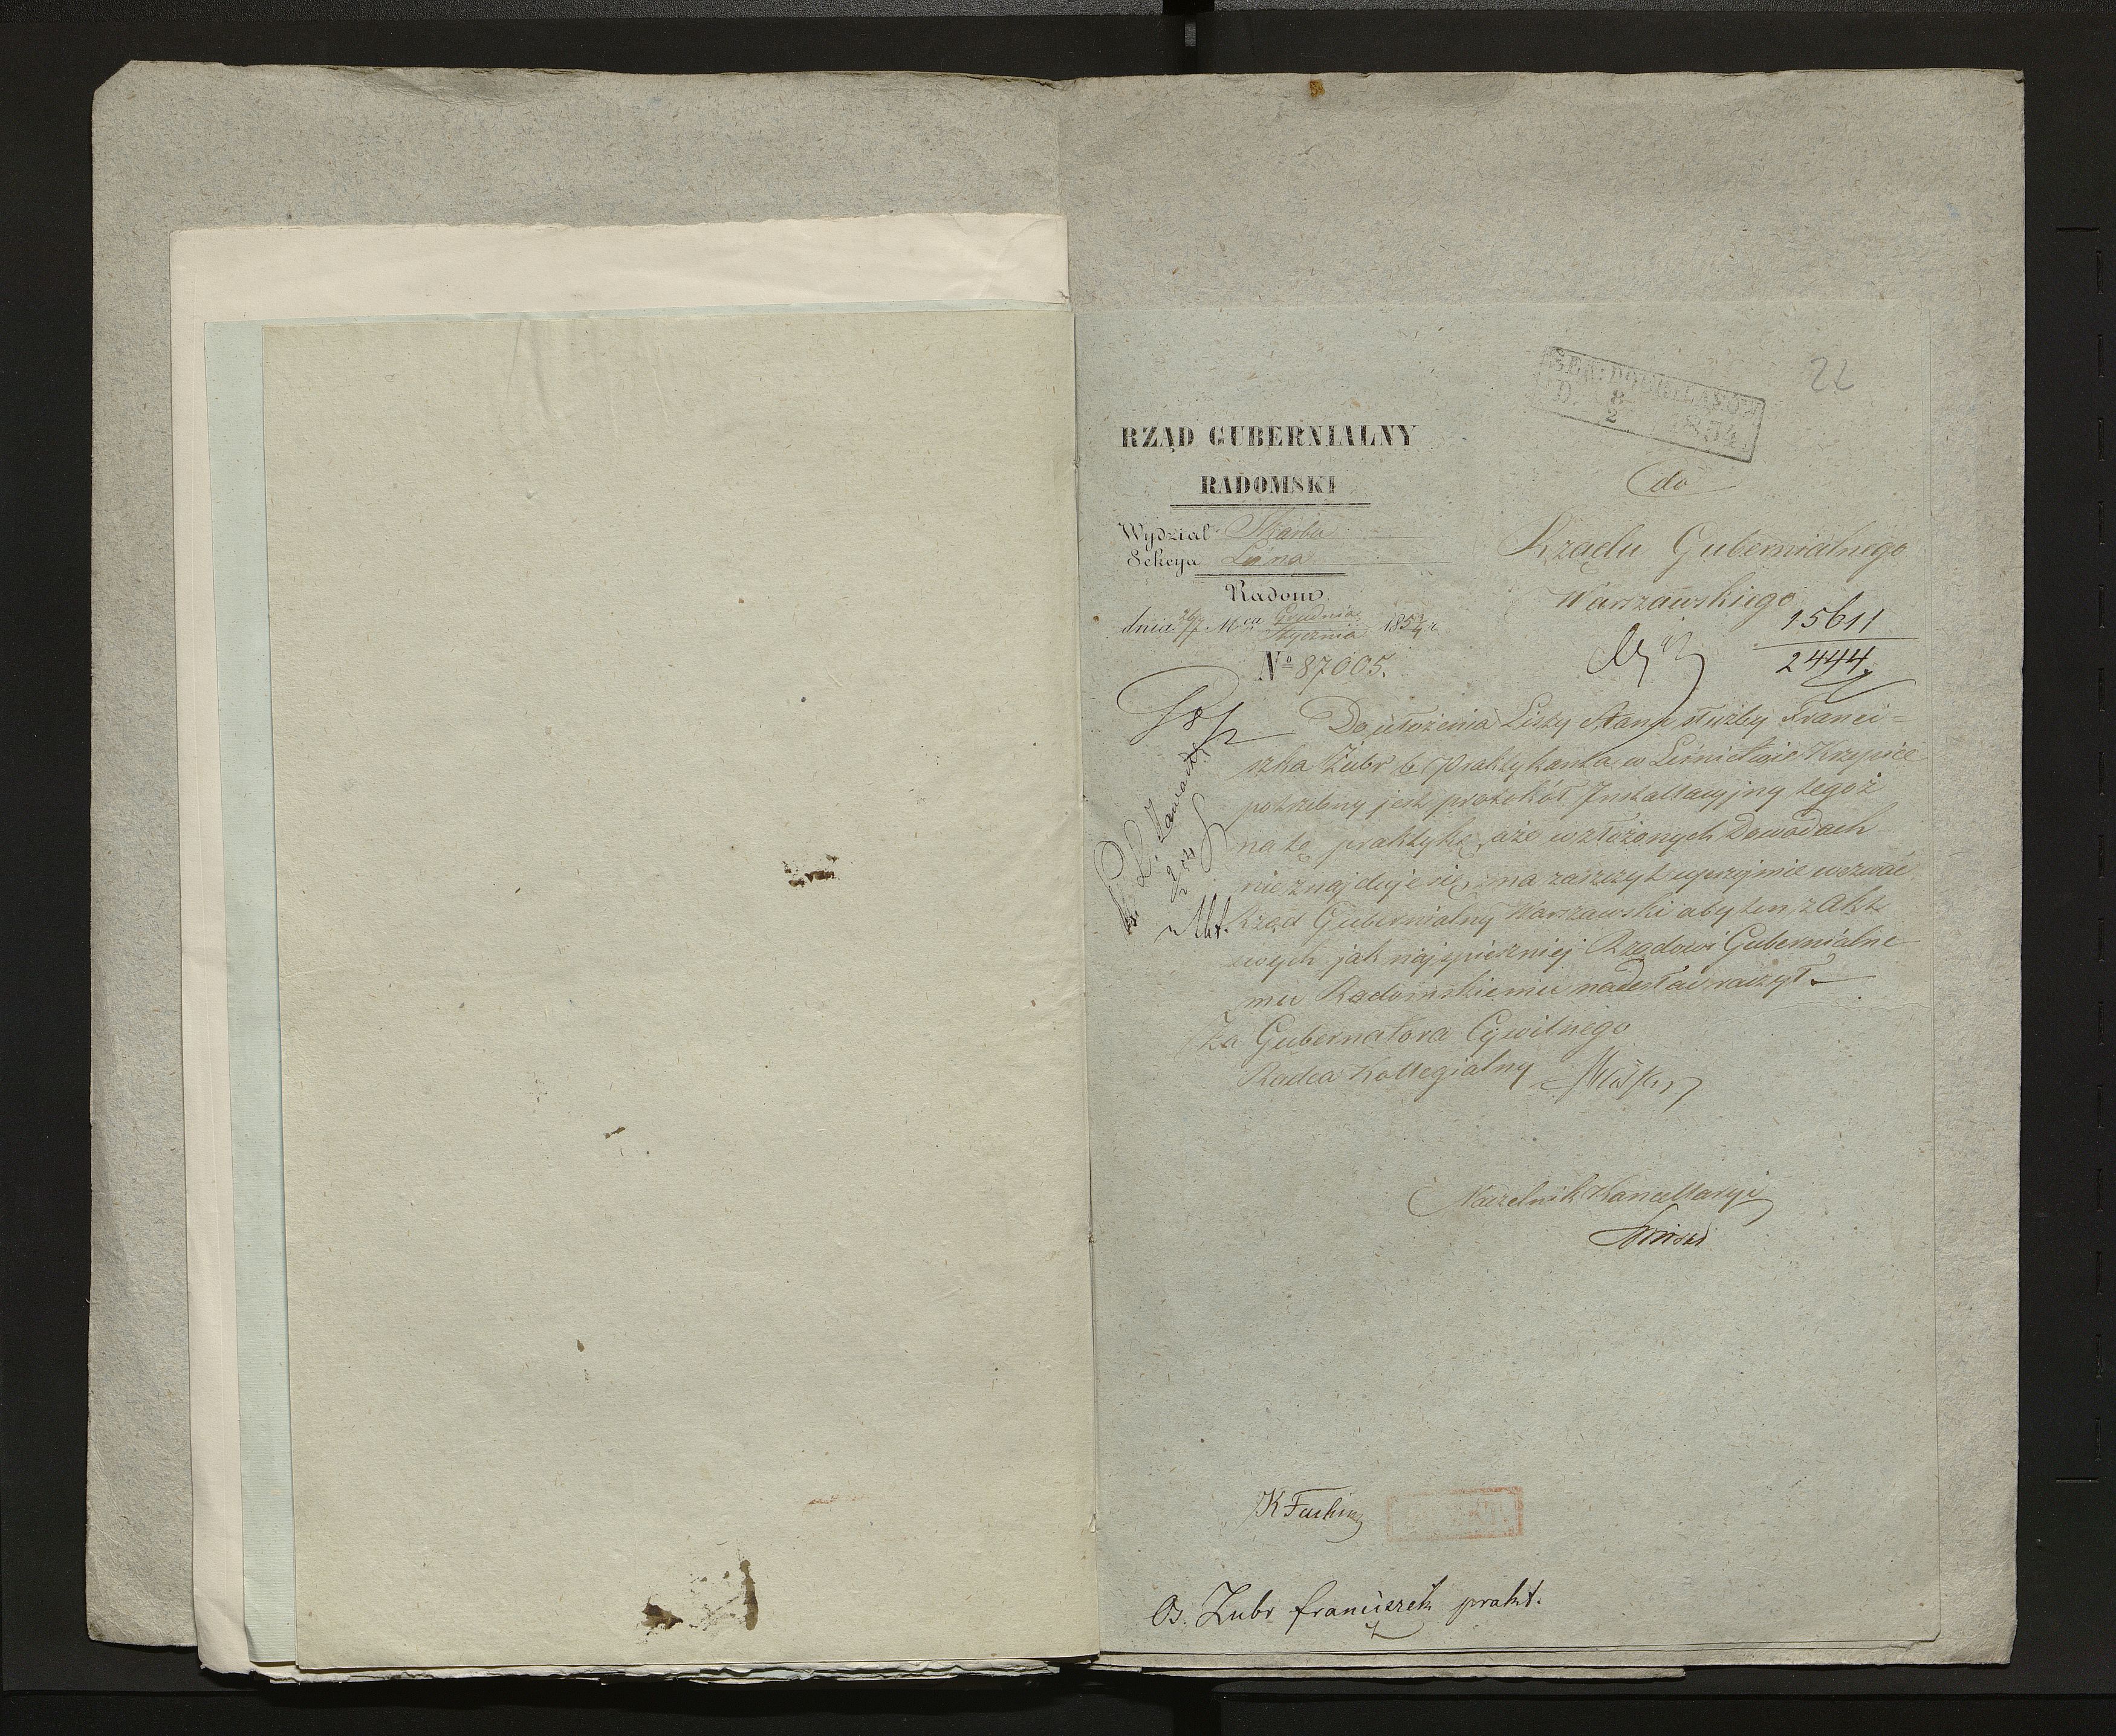 22
SEK: DÓBR I LASÓW
D. 8/2 1854
RZĄD GUBERNIALNY
RADOMSKI
Wydział Skarbu
Sekcya Leśna
Radom
dnia Mca Grudnia/Stycznia 1853/4 r.
No 87005.
do
Rządu Gubernialnego
Warszawskiego
15611
2444
Do ułożenia Listy Stanu służby Franci=
szka Żubr b. Praktykanta w Leśnictwie Krzepice
potrzebny jest protokół Installacyjny tegoż
na tę praktykę, a że w złożonych Dowodach
nie znajduje się, ma zaszczyt uprzejmie wezwać
Rząd Gubernialny Warszawski aby ten z Akt
swych jak najspieszniej Rządowi Gubernialne
mu Radomskiemu nadesłać raczył.
Za Gubernatora Cywilnego
Radca Kollegialny
Naczelnik Kancellaryi
Zawadzki
Akt.
Os. Zubr franciszek prakt.